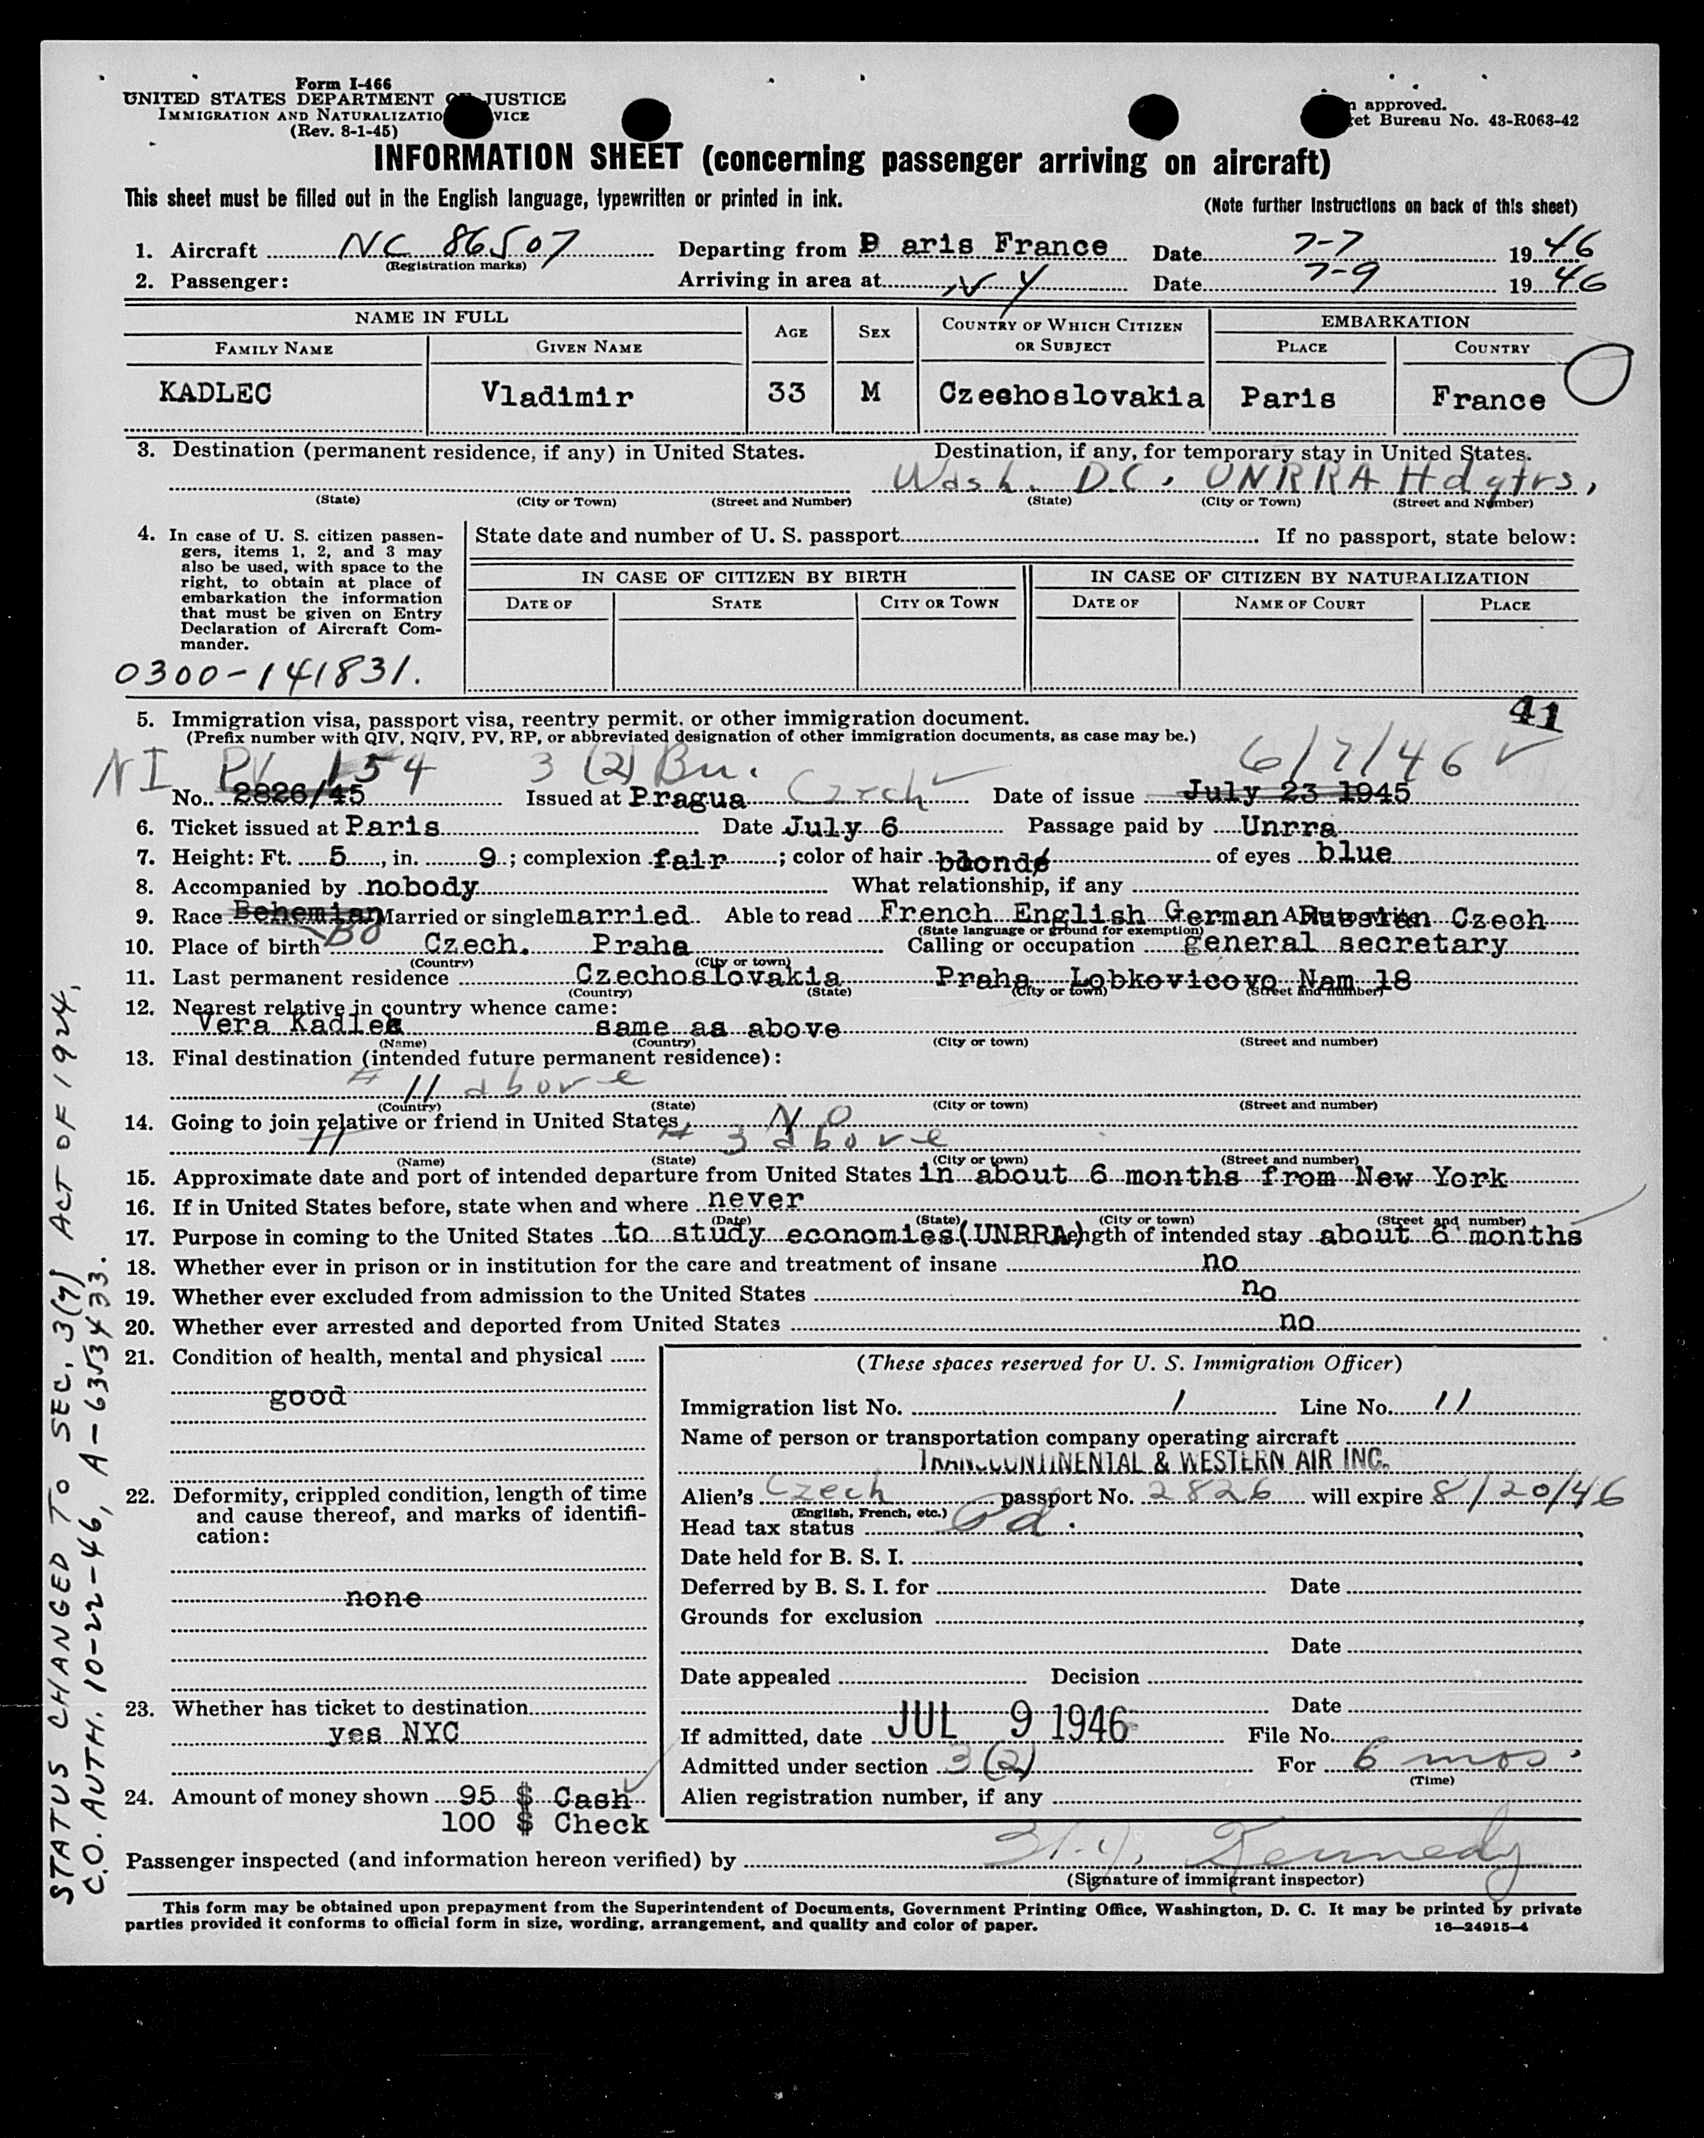 Form I-466
UNITED STATES DEPARTMENT OF JUSTICE
IMMIGRATION AND NATURALIZATION SERVICE
(Rev. 8-1-45)
approved.
et Bureau No. 43-R063-42
INFORMATION SHEET (concerning passenger arriving on aircraft)
This sheet must be filled out in the English language, typewritten or printed in ink.
(Note further instructions on back of this sheet)
1. Aircraft NC 86507 Departing from Paris France Date 7-7 1946
(Registration marks)
2. Passenger: Arriving in area at NY Date 7-9 1946
NAME IN FULL AGE SEX COUNTRY OF WHICH CITIZEN OR SUBJECT EMBARKATION
FAMILY NAME GIVEN NAME PLACE COUNTRY
KADLEC Vladimir 33 M Czechoslovakia Paris France
3. Destination (permanent residence, if any) in United States. Destination, if any, for temporary stay in United States.
Wash. D.C. UNRRA Hdqtrs,
(State) (City or Town) (Street and Number) (State) (City or Town) (Street and Number)
4. In case of U. S. citizen passen-
gers, items 1, 2, and 3 may
also be used, with space to the
right, to obtain at place of
embarkation the information
that must be given on Entry
Declaration of Aircraft Com-
mander.
State date and number of U. S. passport If no passport, state below:
IN CASE OF CITIZEN BY BIRTH IN CASE OF CITIZEN BY NATURALIZATION
DATE OF STATE CITY OR TOWN DATE OF NAME OF COURT PLACE
0300-141831.
41
5. Immigration visa, passport visa, reentry permit, or other immigration document.
(Prefix number with QIV, NQIV, PV, RP, or abbreviated designation of other immigration documents, as case may be.)
NI PV 154 3 (2) Bu. 6/7/46
No. 2826/45 Issued at Pragua Czech Date of issue July 23 1945
6. Ticket issued at Paris Date July 6 Passage paid by Unrra
7. Height: Ft. 5, in. 9; complexion fair; color of hair blond of eyes blue
8. Accompanied by nobody What relationship, if any
9. Race Bohemian Married or single married Able to read French English German Russian Czech
(State language or ground for exemption)
Bo
10. Place of birth Czech. Praha Calling or occupation general secretary
(Country) (City or town)
11. Last permanent residence Czechoslovakia Praha Lobkovicovo Nam 18
(Country) (State) (City or town) (Street and number)
12. Nearest relative in country whence came:
Vera Kadlec same as above
(Name) (Country) (City or town) (Street and number)
13. Final destination (intended future permanent residence):
# 11 above
(Country) (State) (City or town) (Street and number)
14. Going to join relative or friend in United States NO
# 3 above
(Name) (State) (City or town) (Street and number)
15. Approximate date and port of intended departure from United States in about 6 months from New York
16. If in United States before, state when and where never
(Date) (State) (City or town) (Street and number)
17. Purpose in coming to the United States to study economies (UNRRA) Length of intended stay about 6 months
18. Whether ever in prison or in institution for the care and treatment of insane no
19. Whether ever excluded from admission to the United States no
20. Whether ever arrested and deported from United States no
21. Condition of health, mental and physical
good
22. Deformity, crippled condition, length of time
and cause thereof, and marks of identifi-
cation:
none
23. Whether has ticket to destination
yes NYC
24. Amount of money shown 95 $ Cash
100 $ Check
(These spaces reserved for U. S. Immigration Officer)
Immigration list No. 1 Line No. 11
Name of person or transportation company operating aircraft
TRANSCONTINENTAL & WESTERN AIR INC.
Alien's Czech passport No. 2826 will expire 8/20/46
(English, French, etc.)
Head tax status Pd.
Date held for B. S. I.
Deferred by B. S. I. for Date
Grounds for exclusion
Date
Date appealed Decision
Date
If admitted, date JUL 9 1946 File No.
Admitted under section 3(2) For 6 mos.
(Time)
Alien registration number, if any
Passenger inspected (and information hereon verified) by Kennedy
(Signature of immigrant inspector)
This form may be obtained upon prepayment from the Superintendent of Documents, Government Printing Office, Washington, D. C. It may be printed by private
parties provided it conforms to official form in size, wording, arrangement, and quality and color of paper. 16—24915-4
STATUS CHANGED TO SEC. 3(7) ACT OF 1924,
C.O. AUTH. 10-22-46, A-6353433.